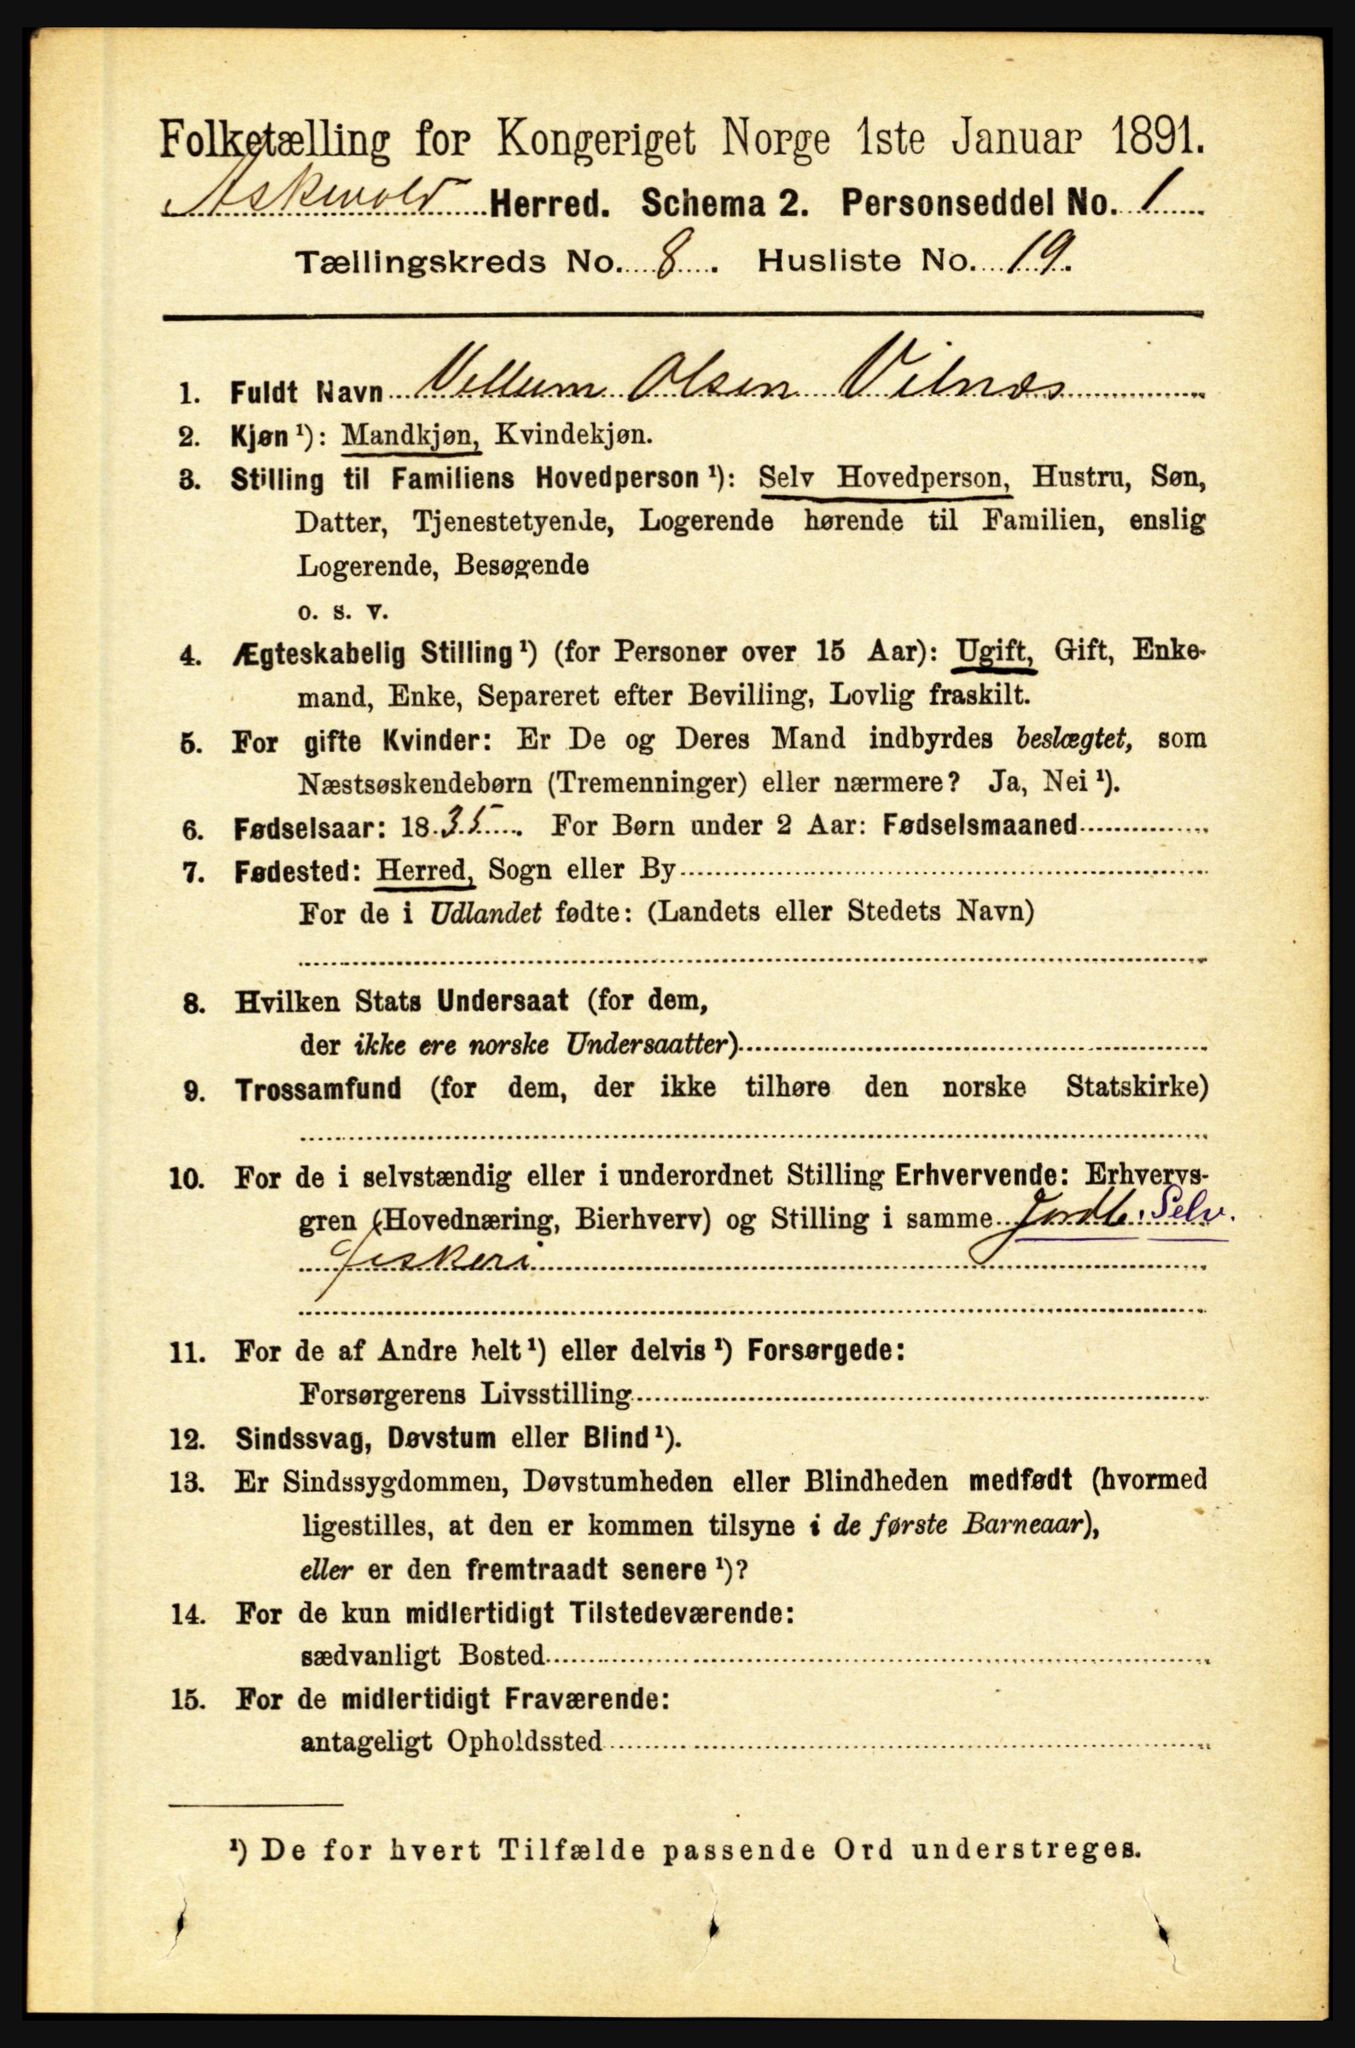 Folketælling for Kongeriget Norge 1ste Januar 1891.
Askevold Herred. Schema 2. Personseddel No. 1
Tællingskreds No. 8. Husliste No. 19.
1. Fuldt Navn Vellum Olsen Vilnæs
2. Kjøn ¹): Mandkjøn, Kvindekjøn.
3. Stilling til Familiens Hovedperson ¹): Selv Hovedperson, Hustru, Søn,
Datter, Tjenestetyende, Logerende hørende til Familien, enslig
Logerende, Besøgende
o. s. v.
4. Ægteskabelig Stilling ¹) (for Personer over 15 Aar): Ugift, Gift, Enke-
mand, Enke, Separeret efter Bevilling, Lovlig fraskilt.
5. For gifte Kvinder: Er De og Deres Mand indbyrdes beslægtet, som
Næstsøskendebørn (Tremenninger) eller nærmere? Ja, Nei ¹).
6. Fødselsaar: 1835. For Børn under 2 Aar: Fødselsmaaned
7. Fødested: Herred, Sogn eller By
For de i Udlandet fødte: (Landets eller Stedets Navn)
8. Hvilken Stats Undersaat (for dem,
der ikke ere norske Undersaatter)
9. Trossamfund (for dem, der ikke tilhøre den norske Statskirke)
10. For de i selvstændig eller i underordnet Stilling Erhvervende: Erhvervs-
gren (Hovednæring, Bierhverv) og Stilling i samme Jordb. Selv.
fiskeri
11. For de af Andre helt ¹) eller delvis ¹) Forsørgede:
Forsørgerens Livsstilling
12. Sindssvag, Døvstum eller Blind ¹).
13. Er Sindssygdommen, Døvstumheden eller Blindheden medfødt (hvormed
ligestilles, at den er kommen tilsyne i de første Barneaar),
eller er den fremtraadt senere ¹)?
14. For de kun midlertidigt Tilstedeværende:
sædvanligt Bosted
15. For de midlertidigt Fraværende:
antageligt Opholdssted
¹) De for hvert Tilfælde passende Ord understreges.